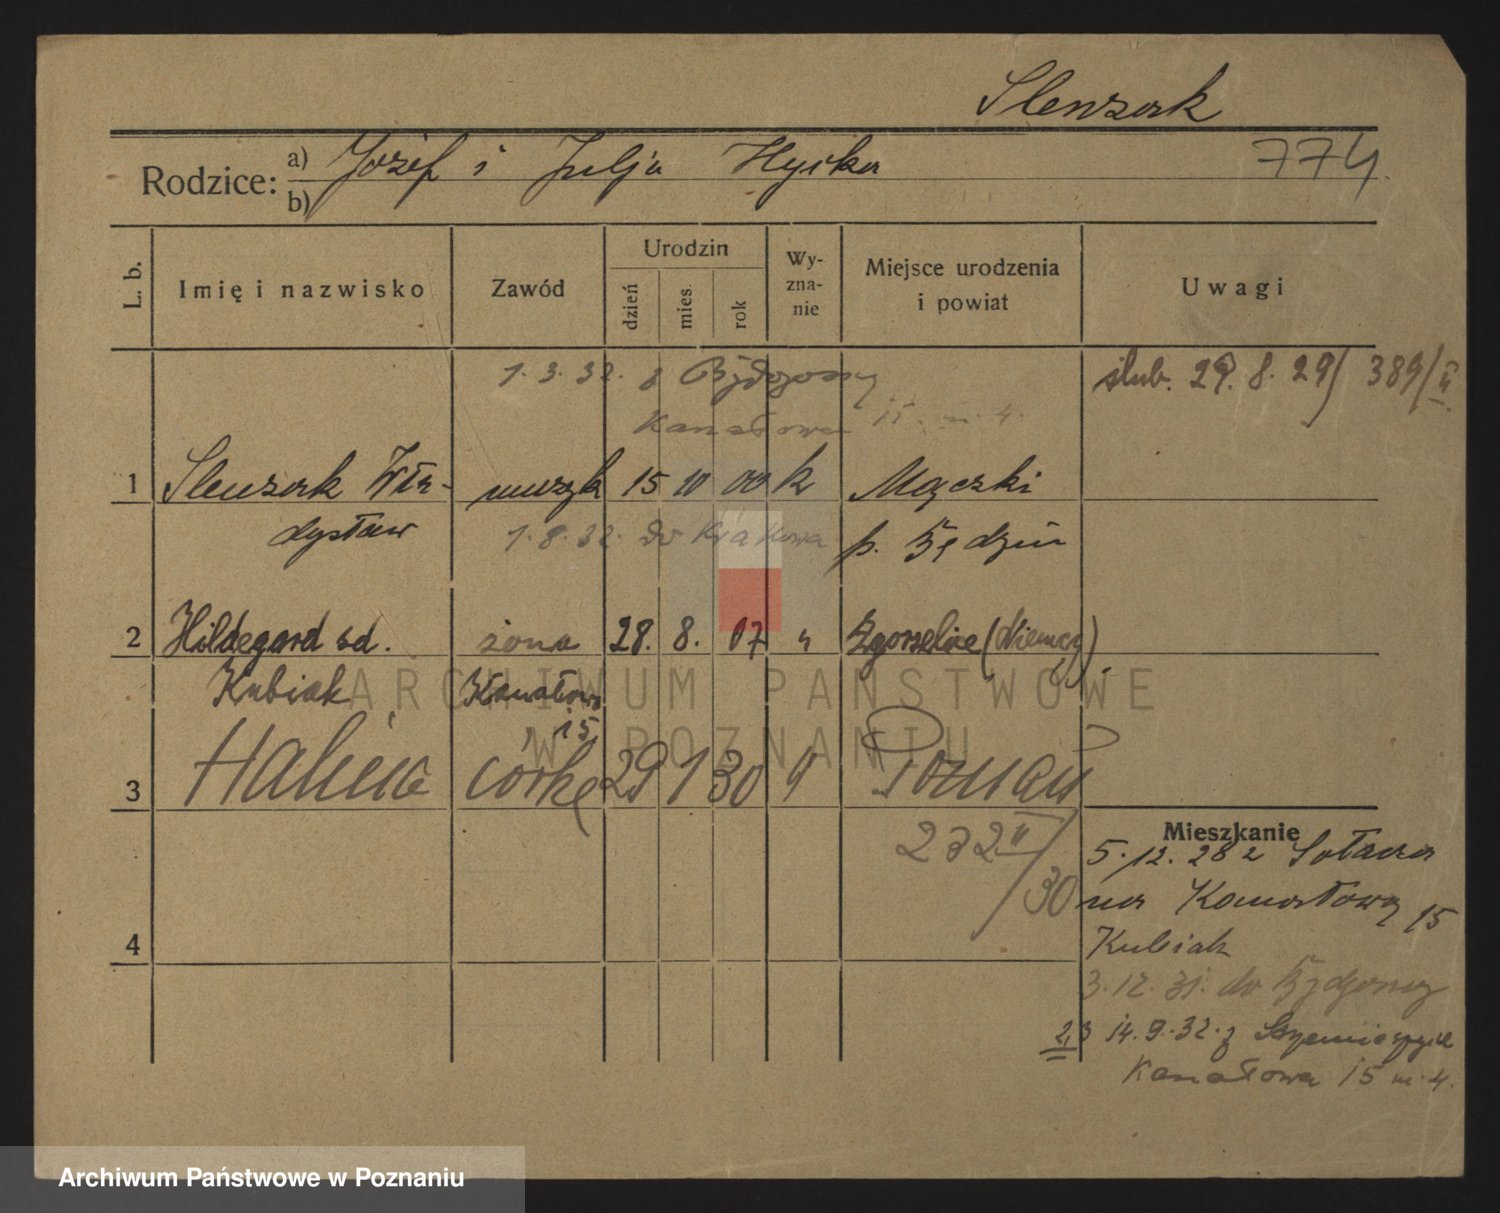 Slenzak
Rodzice: a) Józef i Julja Hyćka 774
b)
L. b. Imię i nazwisko Zawód Urodzin dzień mies. rok Wyznanie Miejsce urodzenia i powiat Uwagi
1.3.32. z Bydgoszczy ślub. 29. 8. 29/ 389/II
Kanałowa 15 m. 4.
1 Slenzak Wła- muzyk 15 10 00 k Mączki
dysław p. Będzin
1.8.32. do Krakowa
2 Hildegard zd. żona 28. 8. 07 " Zgorzelice (Niemcy)
Kubiak Kanałowa
15
3 Halina córka 29 1 30 " Poznań
232 II/30
4
Mieszkanie
5.12.28 z Sołacza
na Kanałową 15
Kubiak
3.12.31. do Bydgoszczy
2,3 14.9.32. z
Kanałowa 15 m. 4.
ARCHIWUM PAŃSTWOWE
W POZNANIU
Archiwum Państwowe w Poznaniu